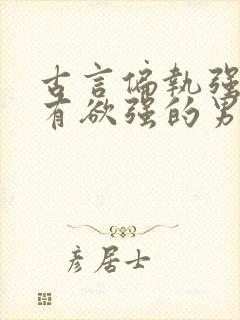 古言偏执强
有欲强的男
彦居士